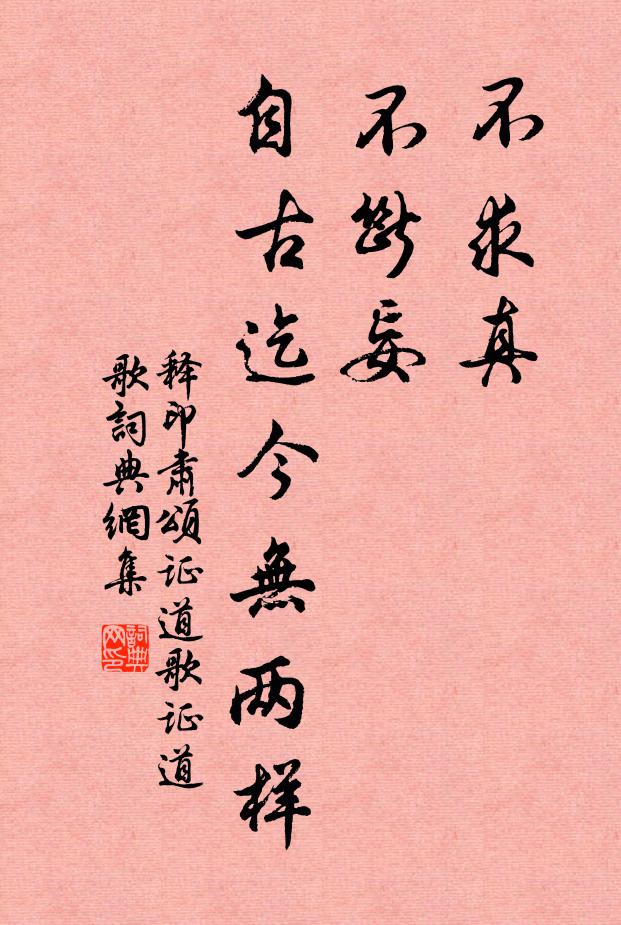 不求真
不斷妄
自古迄今無两样
释印肃颂证道歌证道
歌詞典網集
詞典
网印